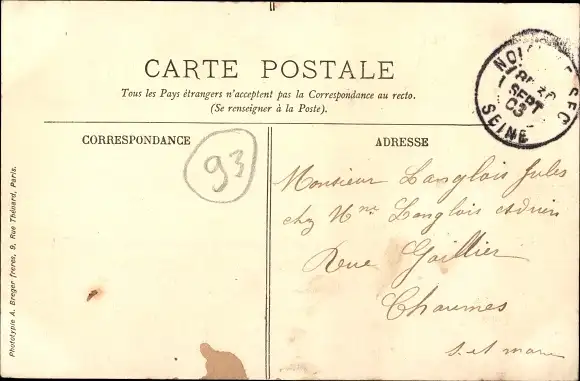 CARTE POSTALE
Tous les Pays étrangers n'acceptent pas la Correspondance au recto.
(Se renseigner à la Poste).
SEC
SEPT
03
SEINE
CORRESPONDANCE
ADRESSE
93
Monsieur Langlois Jules
chez Mme Langlois Adrien
Rue Gaillier
Chaumes
S. et Marne
Phototypie A. Breger frères, 9, Rue Thénard, Paris.